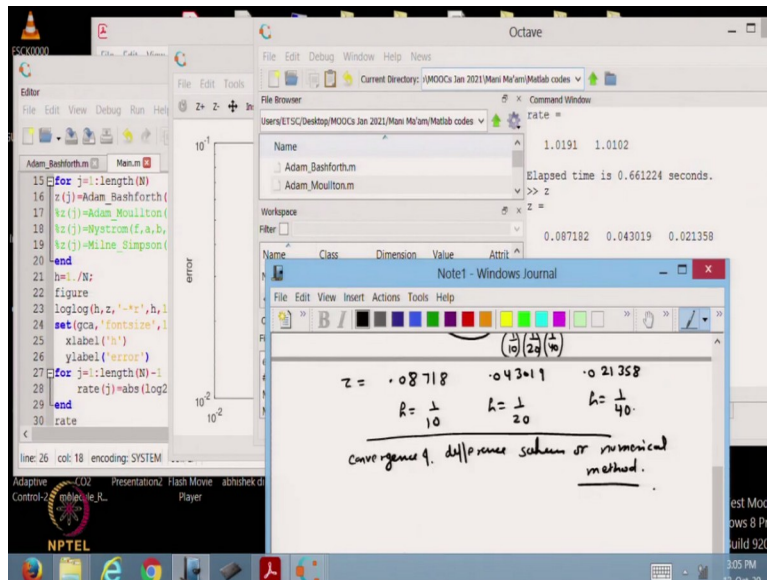 FSCK0000
File Edit View
Editor
File Edit View Debug Run Help
Adam_Bashforth.m Main.m
15 for j=1:length(N)
16 z(j)=Adam_Bashforth(
17 %z(j)=Adam_Moullton(
18 %z(j)=Nystrom(f,a,b,
19 %z(j)=Milne_Simpson(
20 end
21 h=1./N;
22 figure
23 loglog(h,z,'-*r',h,1
24 set(gca,'fontsize',1
25 xlabel('h')
26 ylabel('error')
27 for j=1:length(N)-1
28 rate(j)=abs(log2
29 end
30 rate
line: 26 col: 18 encoding: SYSTEM
File Edit Tools
Z+ Z-
10-1
error
10-2
10-2
Octave
File Edit Debug Window Help News
Current Directory: \MOOCs Jan 2021\Mani Ma'am\Matlab codes
File Browser
Users/ETSC/Desktop/MOOCs Jan 2021/Mani Ma'am/Matlab codes
Name
Adam_Bashforth.m
Adam_Moullton.m
Workspace
Filter
Name Class Dimension Value Attrit
Command Window
rate =
1.0191 1.0102
Elapsed time is 0.661224 seconds.
>> z
z =
0.087182 0.043019 0.021358
Note1 - Windows Journal
File Edit View Insert Actions Tools Help
(1/10) (1/20) (1/40)
z = .08718 .043019 .021358
h= 1/10 h= 1/20 h= 1/40.
convergence of difference scheme or numerical
method.
Adaptive CO2 Presentation2 Flash Movie abhishek di
Control-2 molecule_R... Player
NPTEL
est Mod
ows 8 Pr
uild 920
3:05 PM